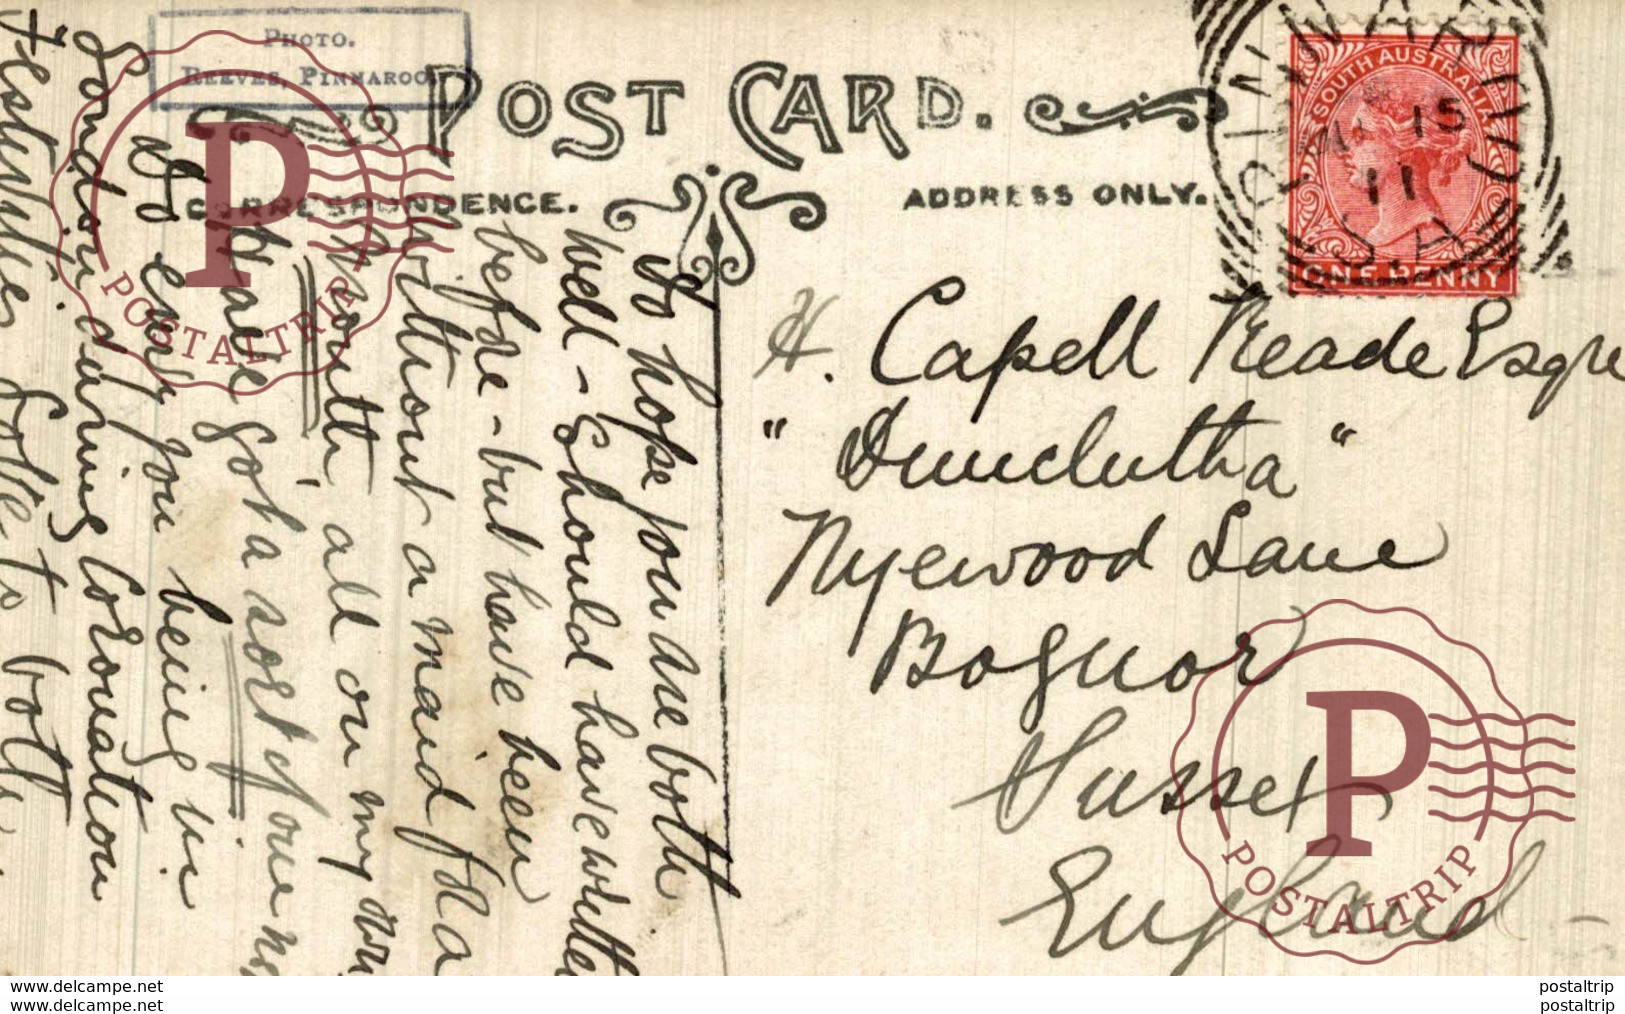 PHOTO.
REEVES, PINNAROO.
POST CARD.
CORRESPONDENCE.
ADDRESS ONLY.
SOUTH AUSTRALIA
ONE PENNY
PINNAROO
15
11
S.A
H. Capell Reade Esqre
"Dunclutha"
Nyewood Lane
Bognor
Sussex
England
So hope you are both
well - Should have written
before - but have been
without a maid for a
month all on my own
Have got a sort of one now
So envy you being in
London during Coronation
Festivities Love to both
POSTALTRIP
POSTALTRIP
my own www.delcampe.net
my own www.delcampe.net
postaltrip
postaltrip